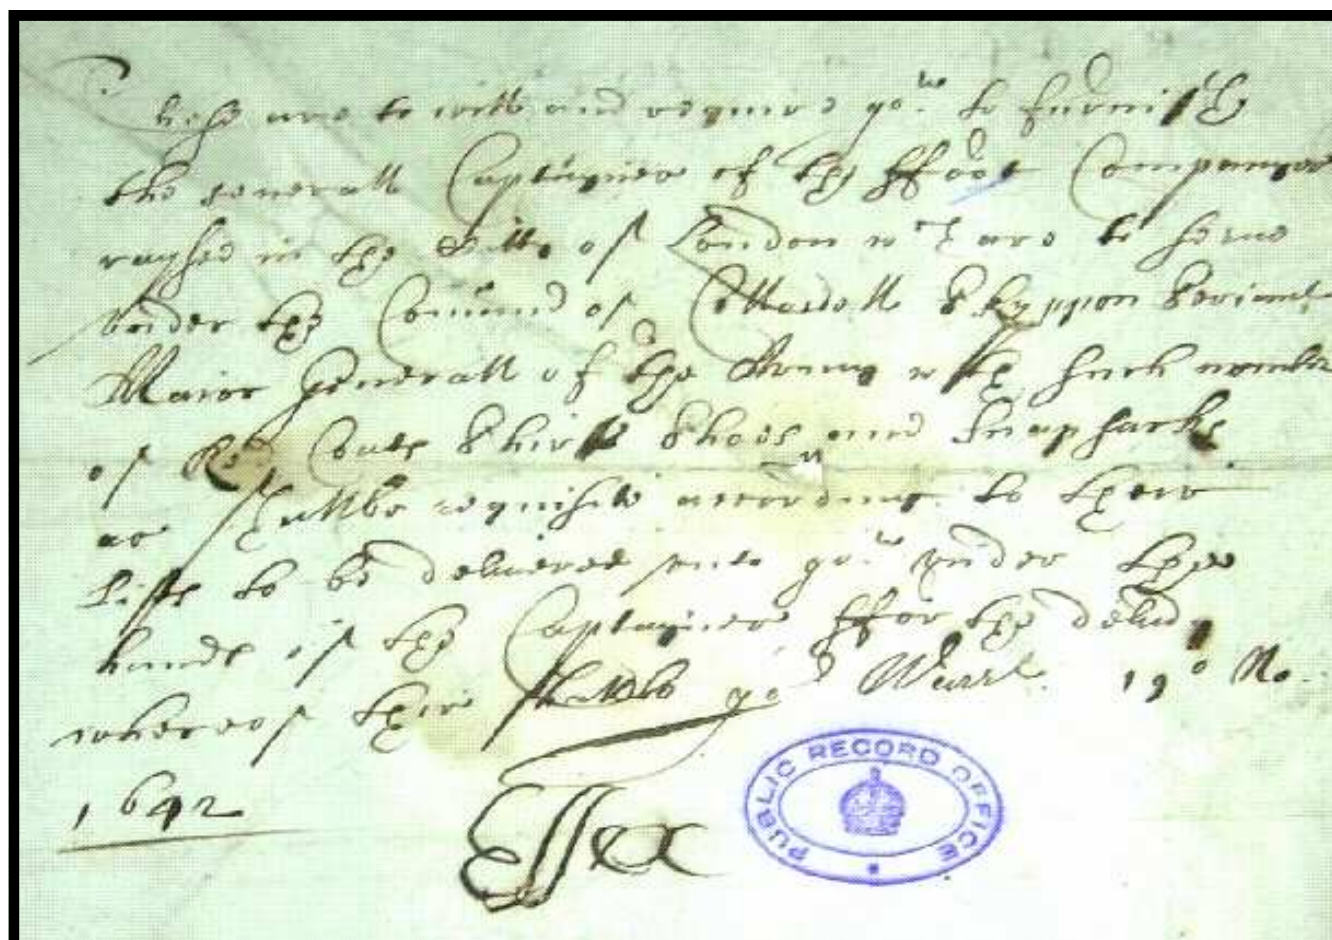 These are to will and require yow to furnish
the severall Captaynes of the ffoot Companyes
raysed in the Citty of London wch are to serve
under the Comand of Skyppon Seriant
Maior Generall of the Army wth such number
of Red Coats Shirts Shoes and Snapsacks
as shalbe requisite according to their
Lists to be delivered unto yow under the
hands of the Captaynes ffor the delivy
whereof this shalbe yor Warrt. 19o No.
1642
Essex
PUBLIC RECORD OFFICE